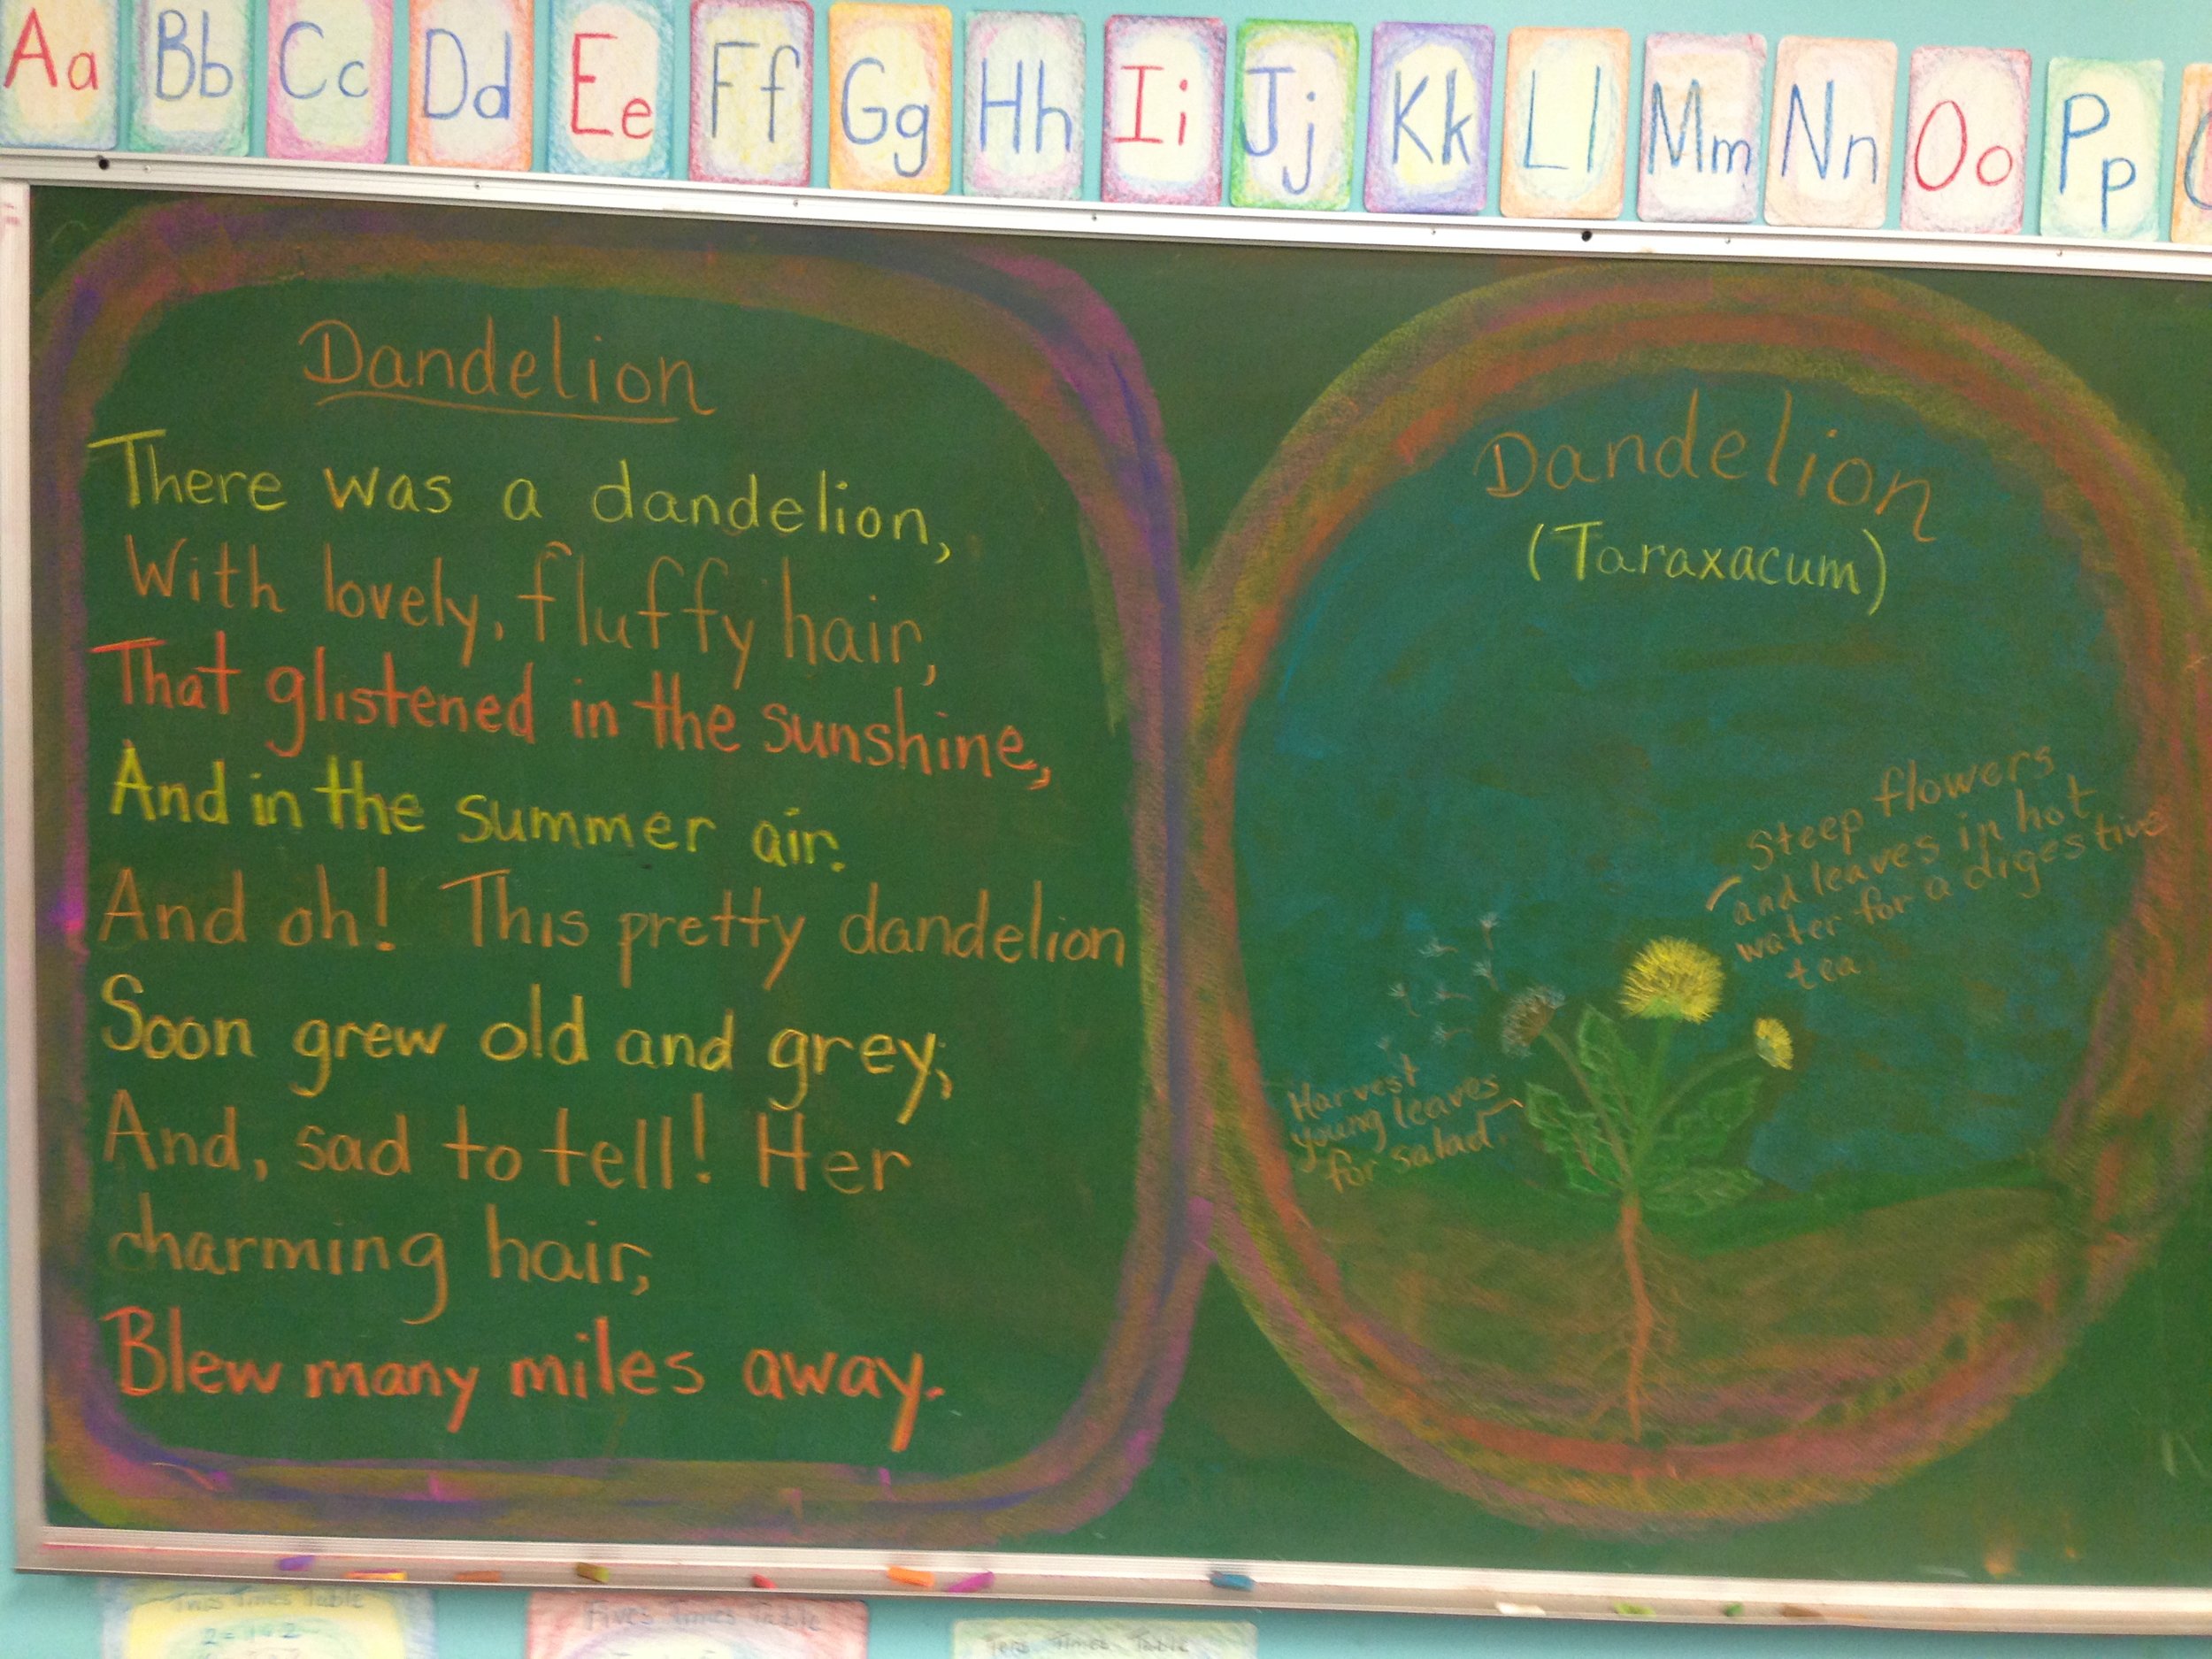 Aa Bb Cc Dd Ee Ff Gg Hh Ii Jj Kk Ll Mm Nn Oo Pp
Dandelion
There was a dandelion,
With lovely, fluffy hair,
That glistened in the sunshine,
And in the summer air.
And oh! This pretty dandelion
Soon grew old and grey;
And, sad to tell! Her
charming hair,
Blew many miles away.
Dandelion
(Taraxacum)
Steep flowers
and leaves in hot
water for a digestive
tea
Harvest
young leaves
for salad.
Twos Times Table
2 = 1 x 2
Fives Times Table
Tens Times Table